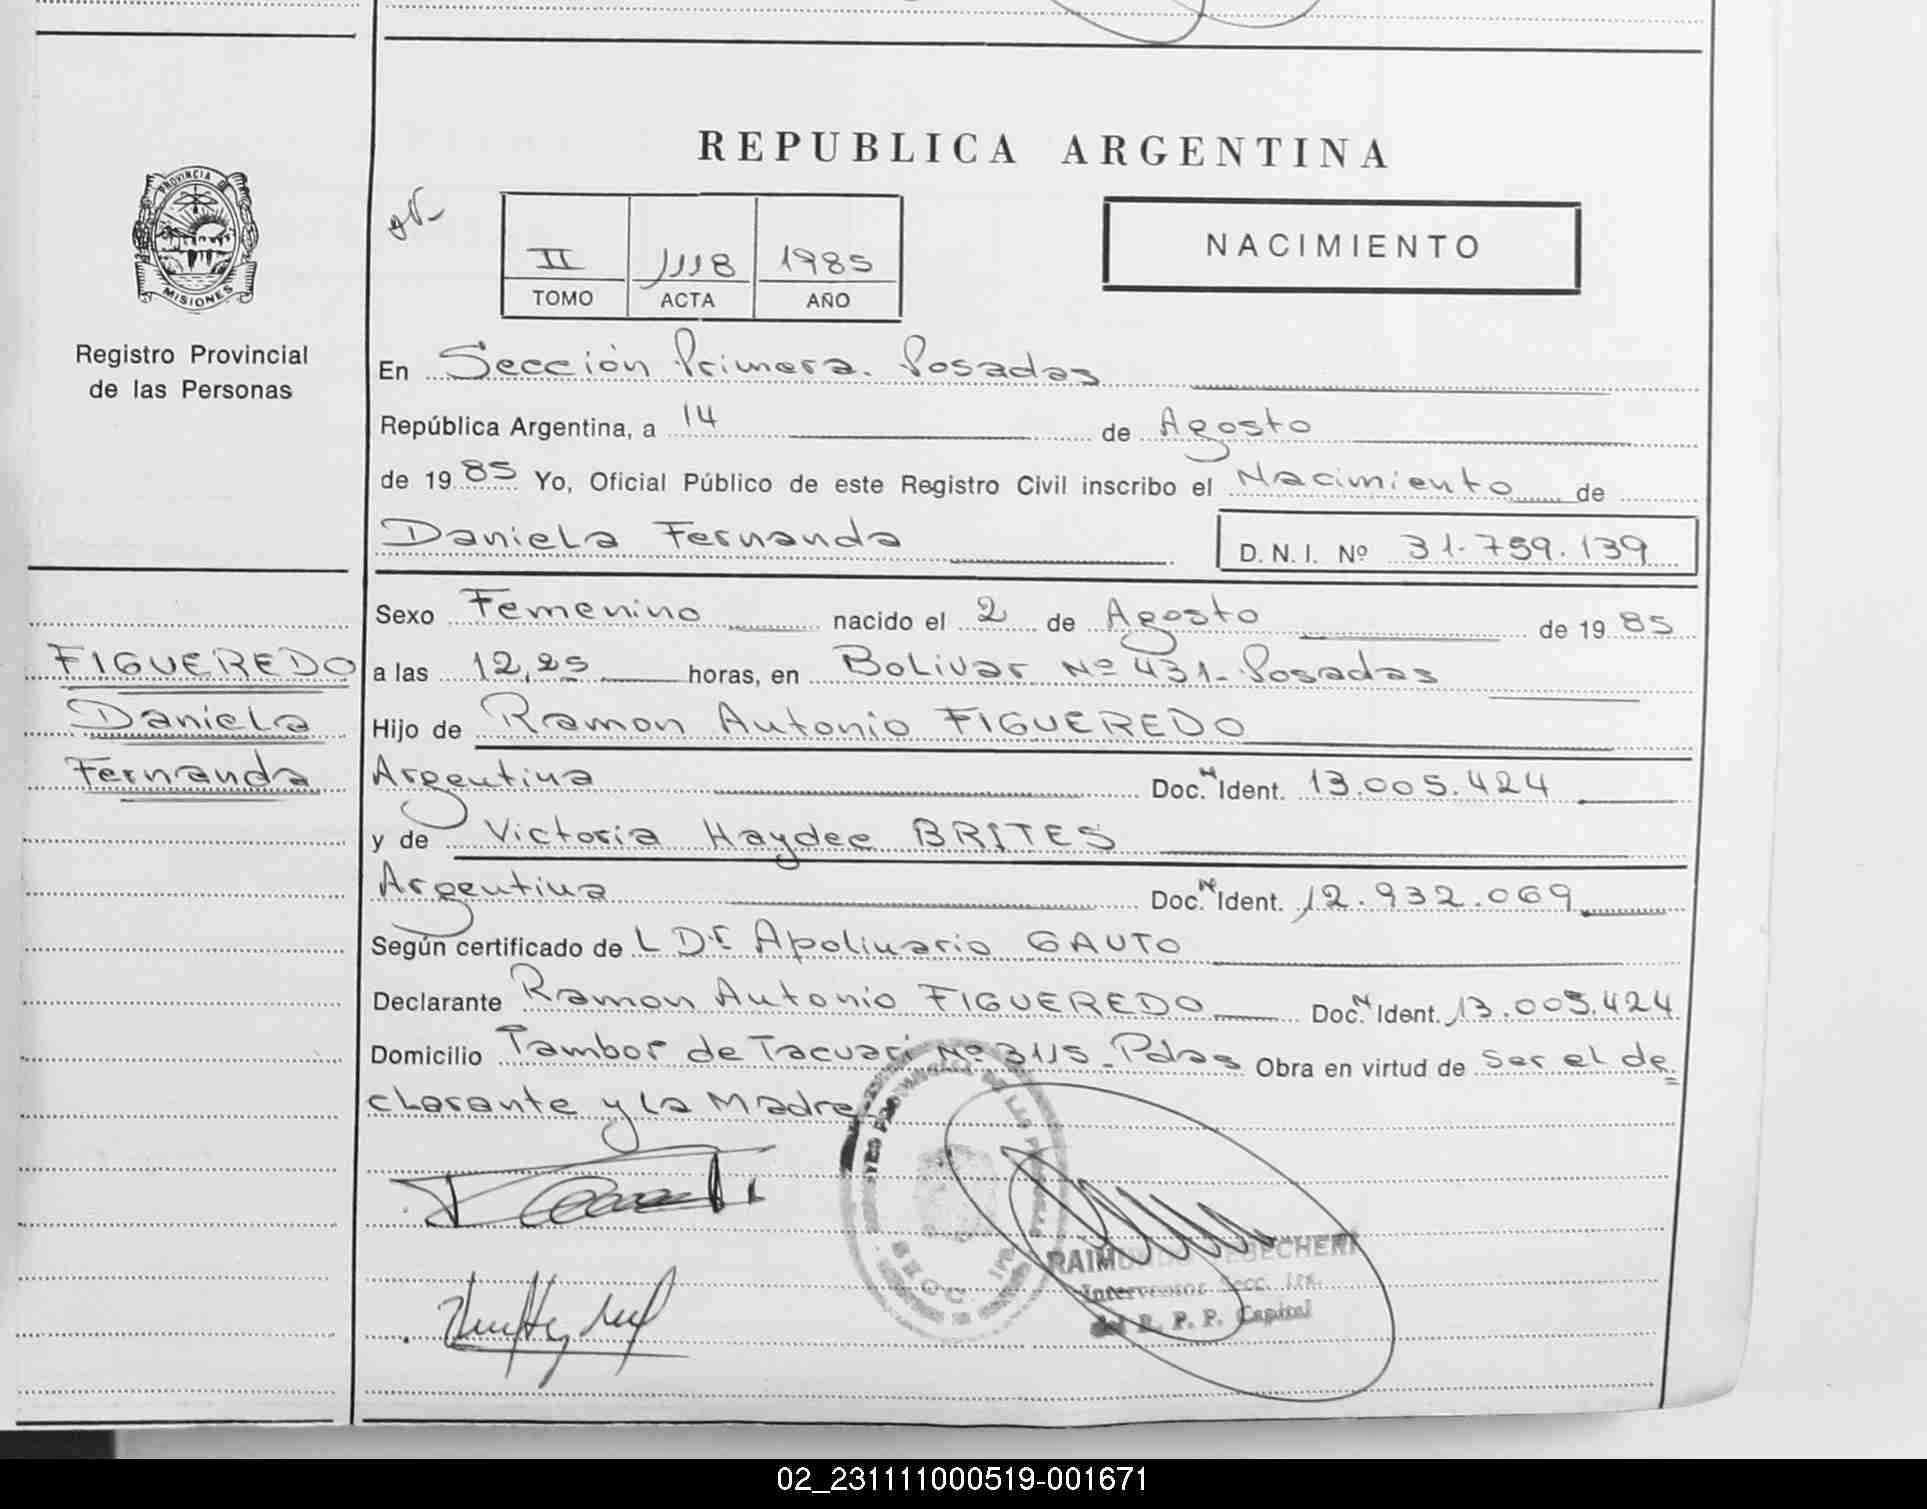 REPUBLICA ARGENTINA
PROVINCIA DE
MISIONES
Registro Provincial
de las Personas
II 1118 1985
TOMO ACTA AÑO
NACIMIENTO
En Sección Primera. Posadas
República Argentina, a 14 de Agosto
de 1985 Yo, Oficial Público de este Registro Civil inscribo el Nacimiento de
Daniela Fernanda D. N. I. Nº 31.759.139
FIGUEREDO
Daniela
Fernanda
Sexo Femenino nacido el 2 de Agosto de 1985
a las 12,25 horas, en Bolivar Nº 431- Posadas
Hijo de Ramon Antonio FIGUEREDO
Argentina Doc. N Ident. 13.005.424
y de Victoria Haydee BRITES
Argentina Doc. N Ident. 12.932.069
Según certificado de L D.E Apolinario GAUTO
Declarante Ramon Antonio FIGUEREDO Doc. N Ident. 13.005.424
Domicilio Tambor de Tacuarí Nº 3115- Pdas Obra en virtud de ser el de=
clarante y la Madre
Interventor Secc. 1ra.
del R. P. P. Capital
02_231111000519-001671